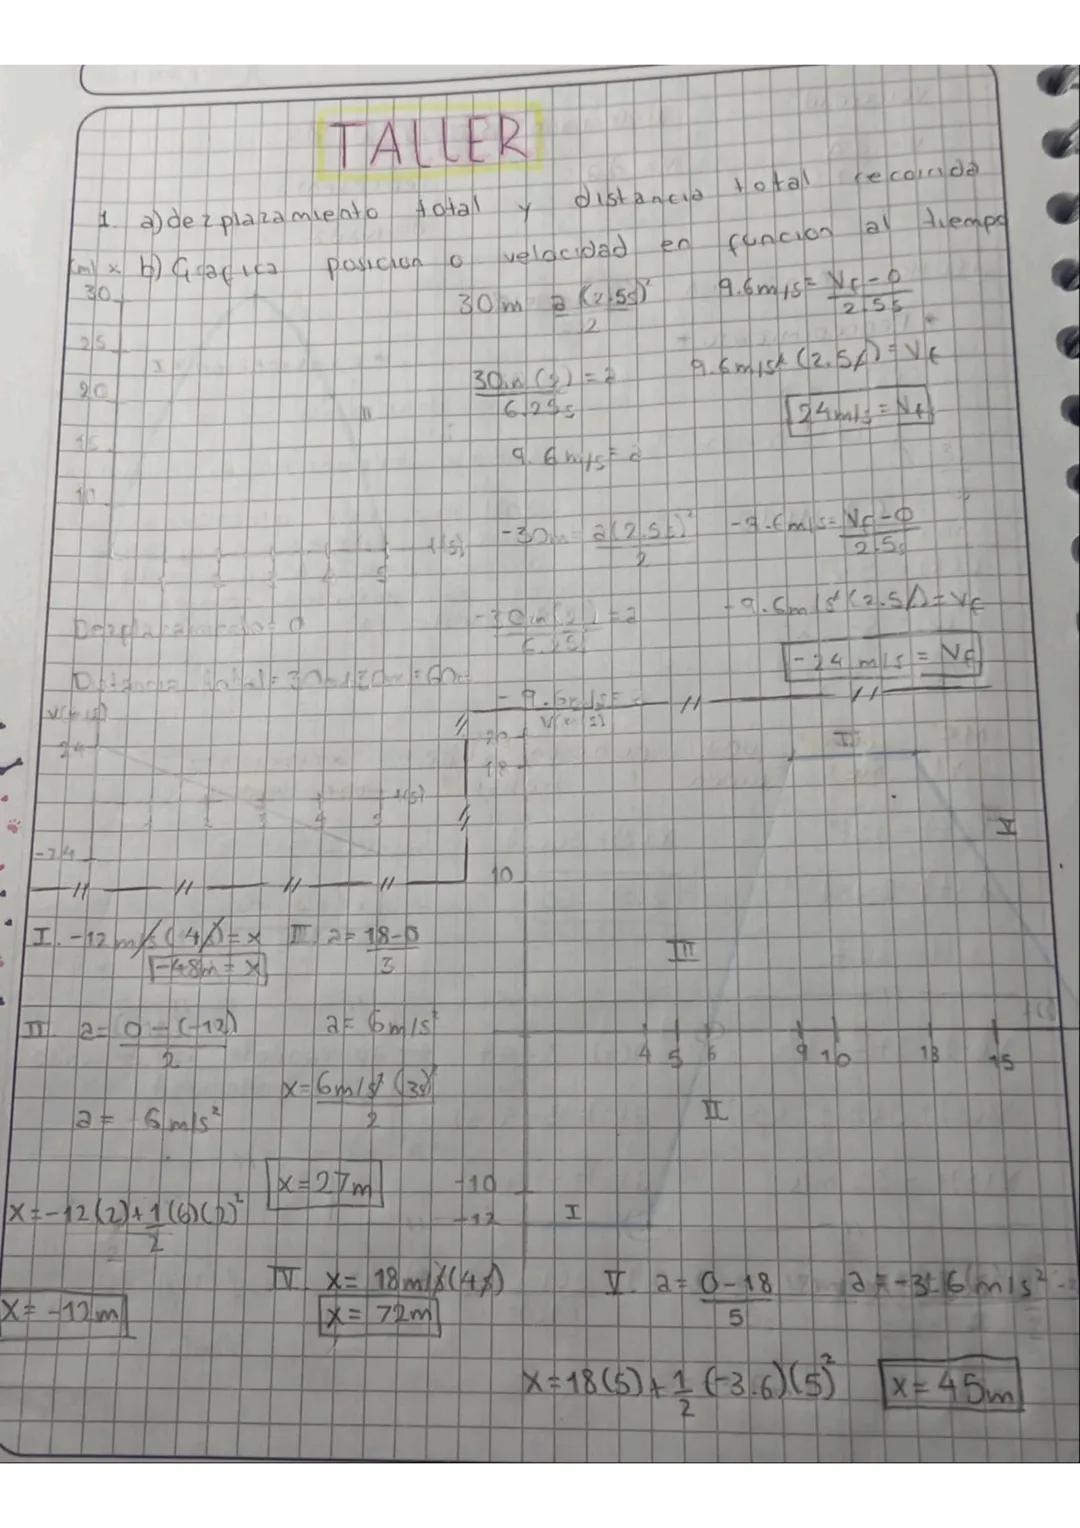 TALLER
1. a) dezplazamiento total y distancia total recorrida
(m) x b) Grafica posicion o velocidad en funcion al tiempo
30
25
20
15
10
I
II
t(s)
5
30m = a (2.5s)² / 2
30m (2) = a / 6.25s
9.6 m/s = a
9.6m/s = Vf - 0 / 2.5s
9.6m/s² (2.5s) = Vf
24m/s = Vf
-30m = a(2.5s)² / 2
-30m(2) = a / 6.25
-9.6m/s =
-9.6m/s = Vf - 0 / 2.5s
-9.6m/s² (2.5s) = Vf
-24 m/s = Vf
Dezplazamiento = 0
Distancia total = 30m + 30m = 60m
V(m/s)
24
2 3 4 5 t(s)
-24
V(m/s)
20
18
10
-10
-12
4 5 6 9 10 13 15
I
II
III
V
I. -12 m/s (4s) = x
-48m = x
II. a = 0 - (-12) / 2
a = 6 m/s²
x = -12(2) + 1/2 (6)(2)²
x = -12m
III. a = 18-0 / 3
a = 6m/s²
x = 6m/s² (3s)² / 2
x = 27m
IV. x = 18m/s(4s)
x = 72m
V. a = 0-18 / 5 a = -3.6 m/s²
x = 18(5) + 1/2 (-3.6)(5)² x = 45m